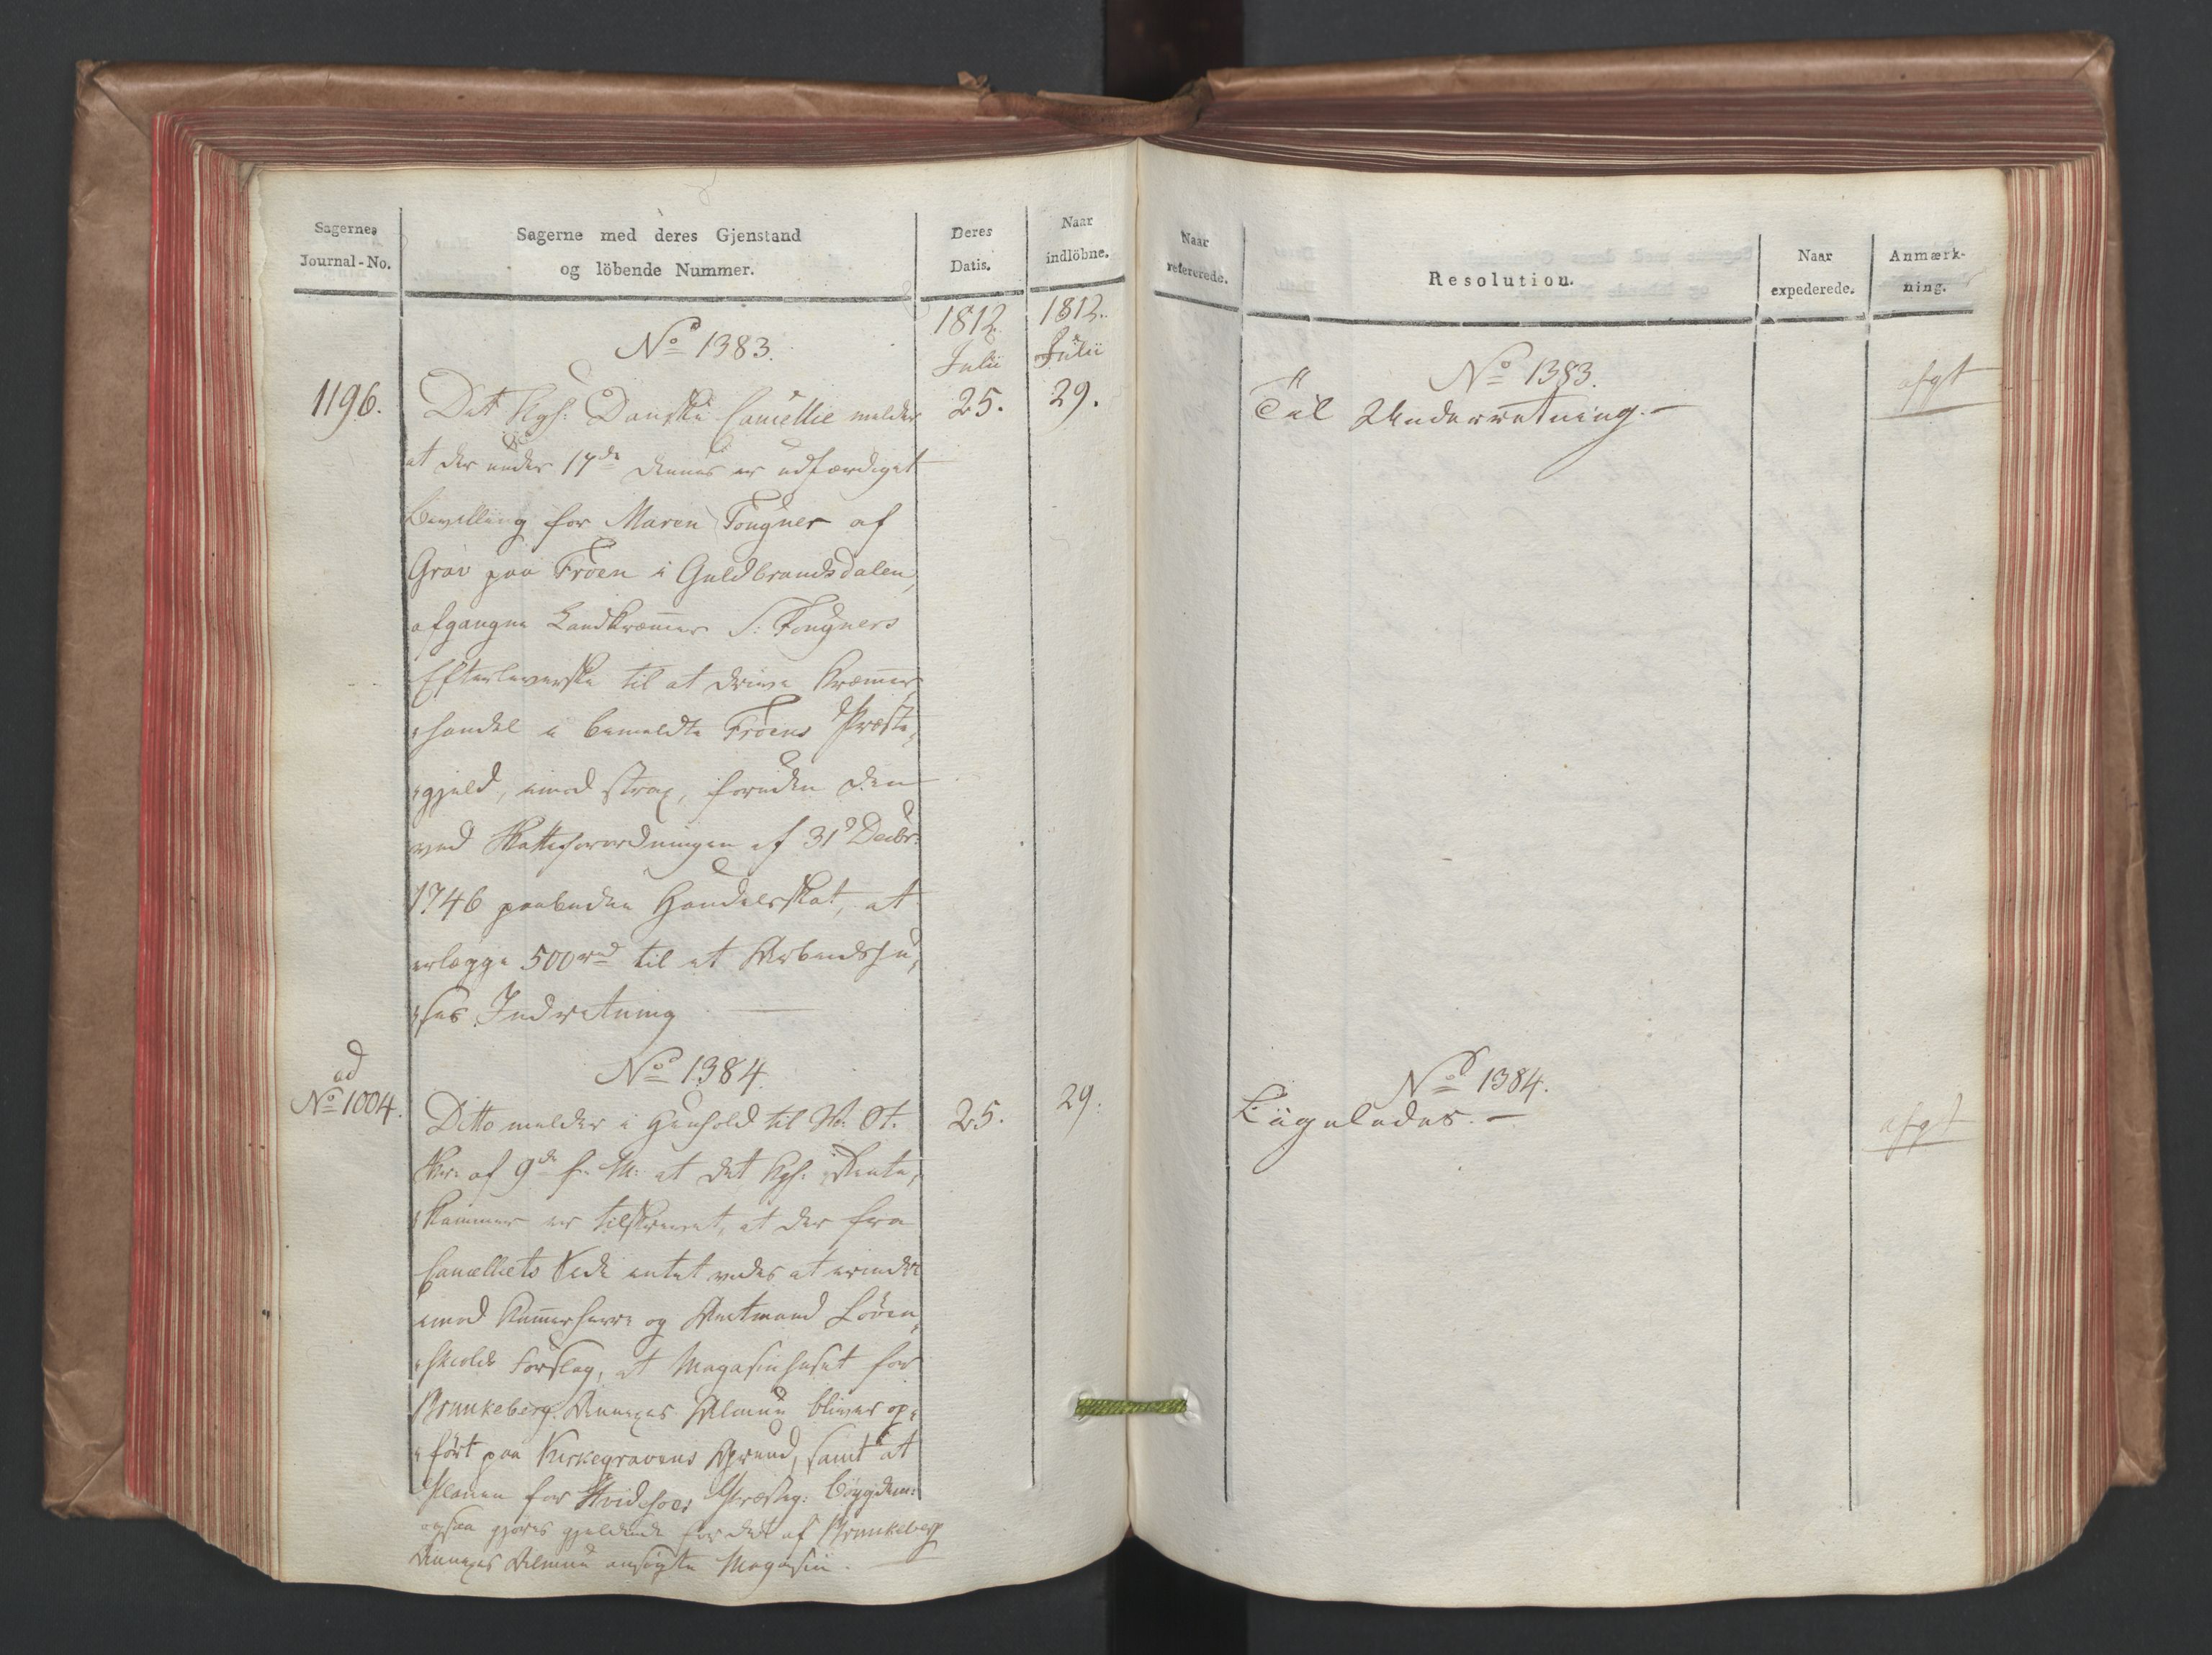 Sagernes
Journal-No.
Sagerne med deres Gjenstand
og löbende Nummer.
Deres
Datis.
Naar
indlöbne.
1812
Julii
1812.
Julii
No 1383.
1196.
Det Kgl: Danske Cancellie melder
25.
29.
at der under 17de dennes er udfærdiget
Bevilling for Maren Fougner af
Grav paa Froen i Guldbrandsdalen,
afgangne Landkræmer S: Fougners
Efterleverske til at drive Kræmer,
handel i bemeldte Froens Præste,
gjeld, imod strax, foruden den
ved Skatteforordningen af 31 Decbr:
1746 paabudne Handelsskat, at
erlægge 500 rd til et Arbeidshu,
ses Indretning
No 1384.
ad
No 1004.
Ditto melder i Henhold til
25.
29.
Skr: af 9de f. M: at det Kgl. Rente,
kammer er tilskrevet, at der fra
Cancelliets Side intet vides at erindre
imod Kamerherre og Amtmand Løven,
skiolds Forslag, at Magasinhuset for
Brunkeberg Annexes Almue bliver op,
ført paa Kirkegravens Grund, samt at
Planen for Hvidesøes Præsteg: Bøygdem:
ogsaa gjøres gjeldende for det af Brunkeberg
Annexes Almue ansøgte Magasin.
Naar
refererede.
Resolution.
Naar
expederede.
Anmærk-
ning.
No 1383.
Til Underretning.
afgt
No 1384.
Ligeledes.
afgt